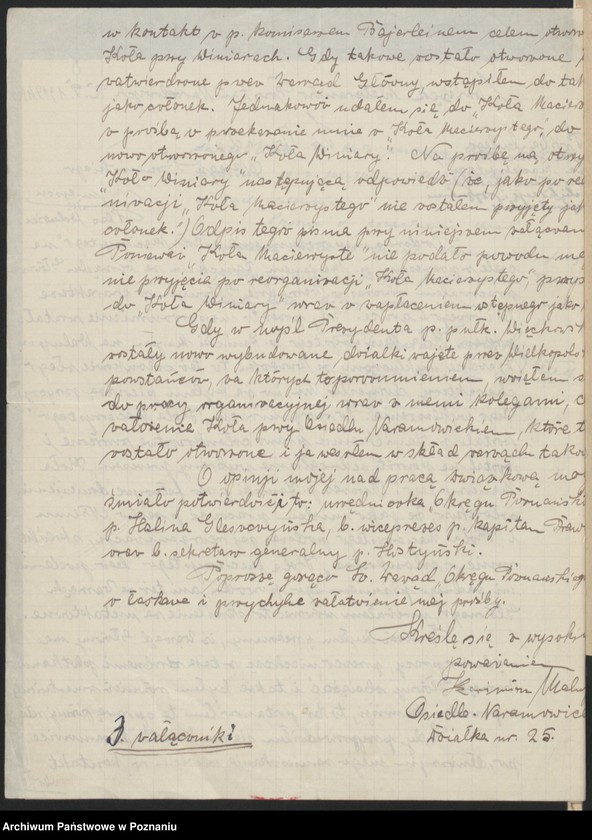 w kontakt z p. komisarzem Bajerleinem celem otworz
Koła przy Winiarach. Gdy takowe zostało otworzone
zatwierdzone przez Zarząd Główny, wstąpiłem do tak
jako członek. Jednakowóż udałem się do „Koła Macierz
z prośbą o przekazanie mnie z „Koła Macierzystego”, do
nowo otworzonego „Koła Winiary”. Na prośbę mą otrzy
„Koło Winiary” następującą odpowiedź (że, jako po reor
„nizacji „Koła Macierzystego” nie zostałem przyjęty jak
członek.) Odpis tegoż pisma przy niniejszem załączam
Ponieważ „Koło Macierzyste” nie podało powodu
nie przyjęcia po reorganizacji „Koła Macierzystego”,
do „Koła Winiary” wraz z zapłaceniem wstępnego jako
Gdy w myśl Prezydenta p. pułk. Więckowsk
zostały nowo wybudowane, działki zajęte przez Wielkopolsk
powstańców, za których to porozumieniem, wziąłem s
do pracy organizacyjnej wraz z memi kolegami, c
założenie Koła przy Osiedlu Naramowickiem, które t
zostało otworzone i ja wszedłem w skład zarządu takow
O opinji mojej nad pracą związkową mo
śmiało potwierdzić to: urzędniczka Okręgu Poznański
p. Halina Gleszczyńska, b. wiceprezes p. kapitan
oraz b. sekretarz generalny p. Hostyński.
Poproszę gorąco Sz. Zarząd Okręgu Poznańskieg
o łaskawe i przychylne załatwienie mej prośby.
Kreślę się z wysoki
poważaniem
Osiedle - Naramowick
Działka nr. 25.
3. załączniki
Archiwum Państwowe w Poznaniu